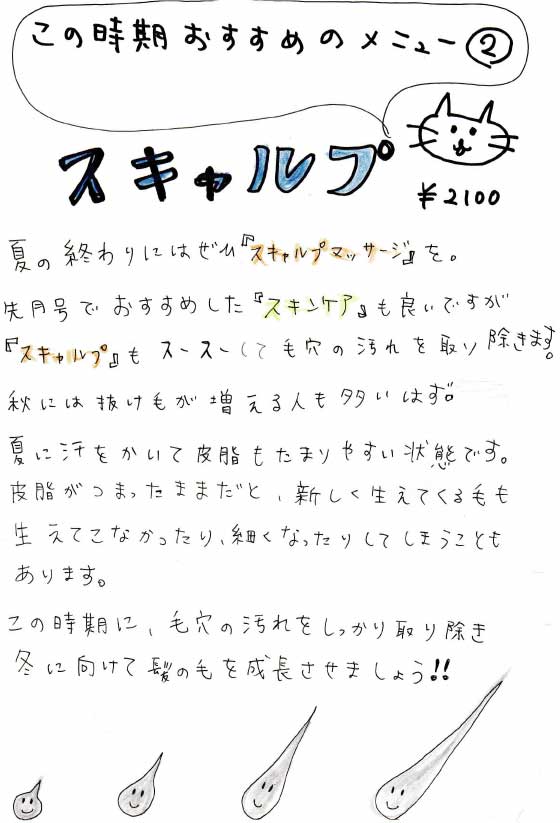 この時期おすすめのメニュー②
スキャルプ
¥2100
夏の終わりにはぜひ『スキャルプマッサージ』を。
先月号でおすすめした『スキンケア』も良いですが
『スキャルプ』もスースーして毛穴の汚れを取り除きます。
秋には抜け毛が増える人も多いはず。
夏に汗をかいて皮脂もたまりやすい状態です。
皮脂がつまったままだと、新しく生えてくる毛も
生えてこなかったり、細くなったりしてしまうことも
あります。
この時期に、毛穴の汚れをしっかり取り除き
冬に向けて髪の毛を成長させましょう!!